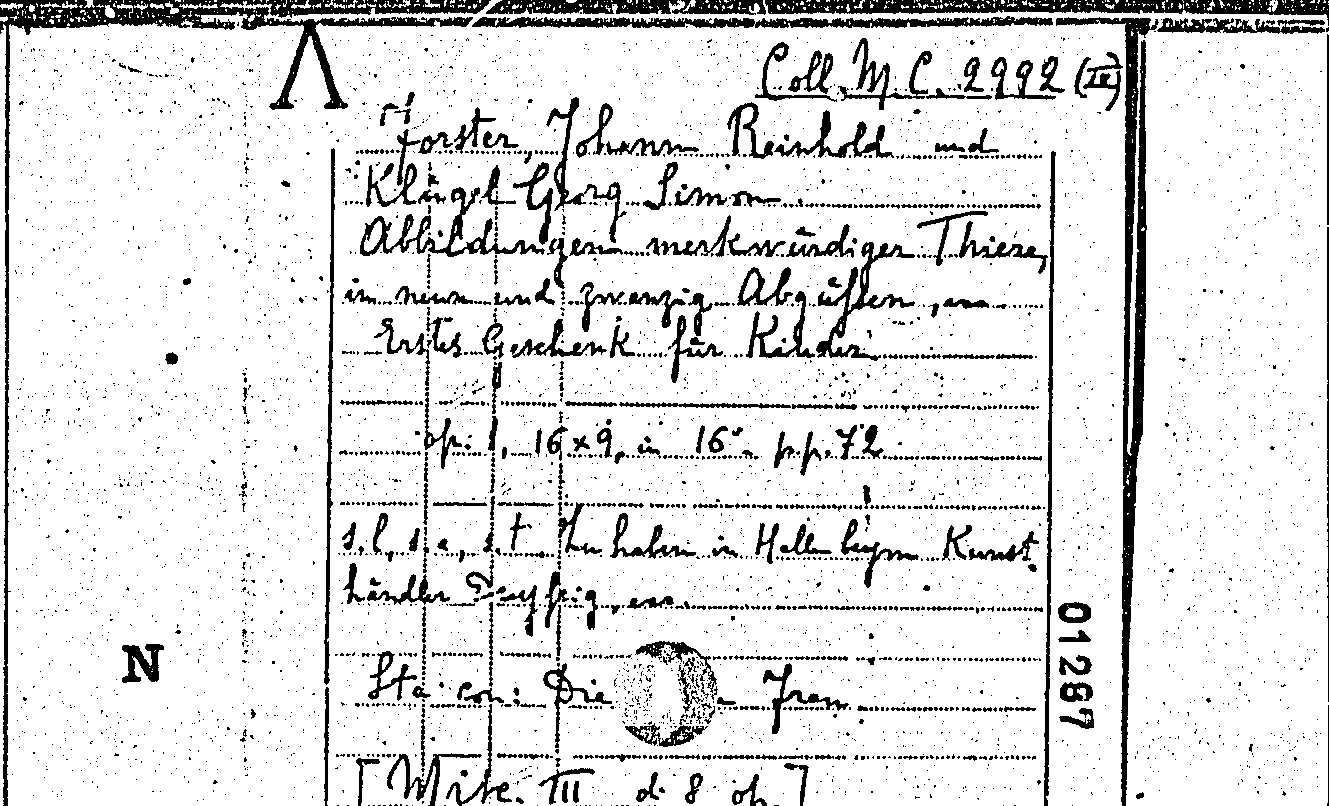 Λ
Coll. M. C. 2992 (IV)
Forster, Johann Reinhold und
Klügel Georg Simon.
Abbildungen merkwürdiger Thiere,
in neun und zwanzig Abgüssen, ecc.
Erstes Geschenk für Kinder.
op. 1, 16 x 9, in 16°. pp. 72
s. l., s. a., s. t. Zu haben in Halle beym Kunst
händler Dreyssig, ecc.
N
01287
Sta con: Die
[Misc. III d. 8 op.]